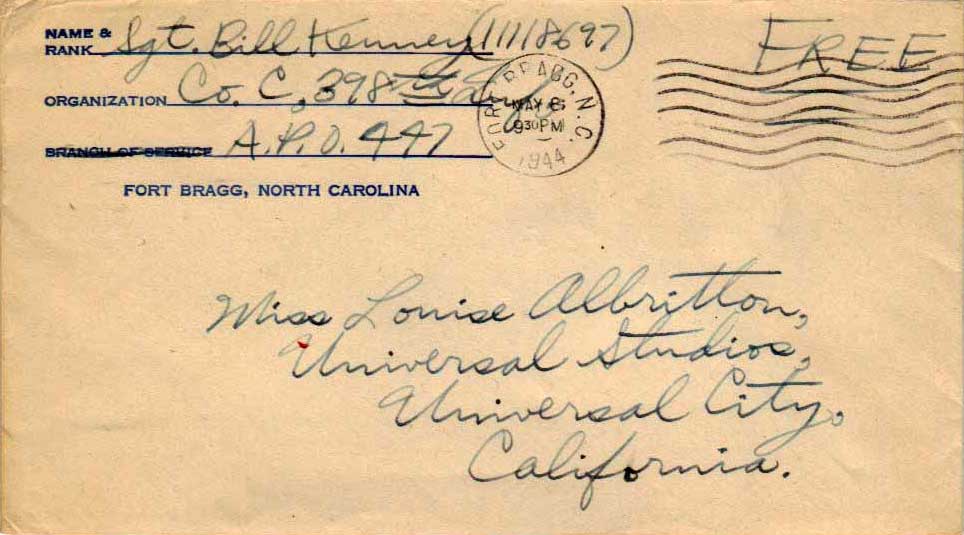 NAME &
RANK Sgt. Bill Kenney (11118697)
FREE
ORGANIZATION Co. C, 398th Inf.
BRANCH OF SERVICE A.P.O. 447
FORT BRAGG, NORTH CAROLINA
FORT BRAGG, N.C.
MAY 8
930PM
1944
Miss Louise Albritton,
Universal Studios,
Universal City,
California.